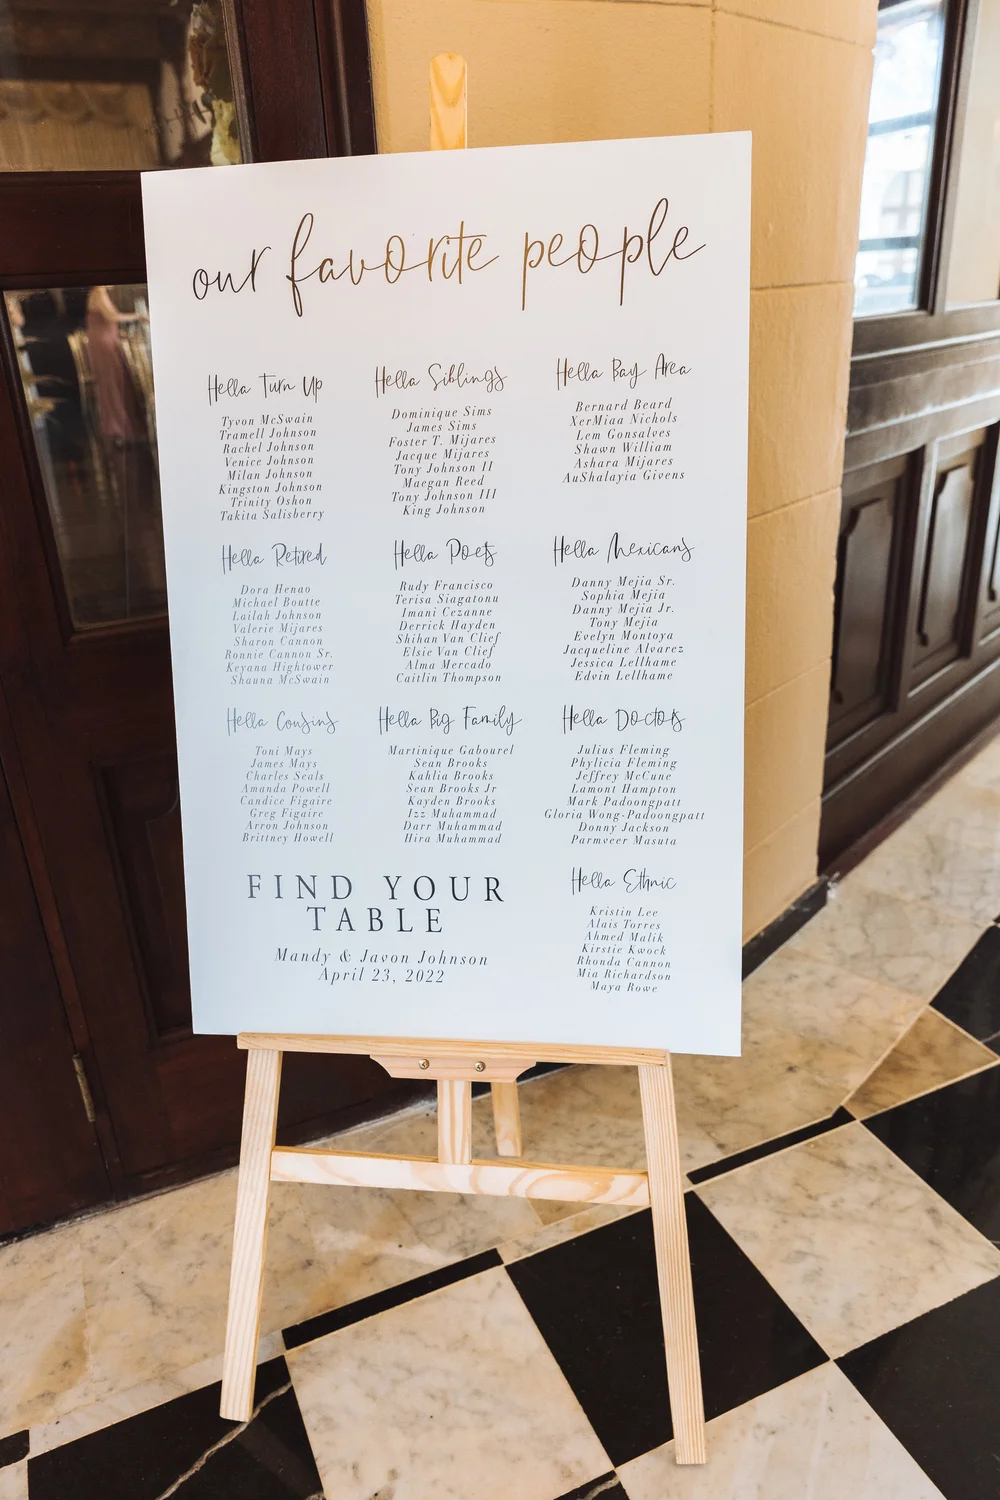 our favorite people
Hella Turn Up
Tyvon McSwain
Tramell Johnson
Rachel Johnson
Venice Johnson
Milan Johnson
Kingston Johnson
Trinity Oshon
Takita Salisberry
Hella Siblings
Dominique Sims
James Sims
Foster T. Mijares
Jacque Mijares
Tony Johnson II
Maegan Reed
Tony Johnson III
King Johnson
Hella Bay Area
Bernard Beard
XerMiaa Nichols
Lem Gonsalves
Shawn William
Ashara Mijares
AuShalayia Givens
Hella Retired
Dora Henao
Michael Boutte
Lailah Johnson
Valerie Mijares
Sharon Cannon
Ronnie Cannon Sr.
Keyana Hightower
Shauna McSwain
Hella Poets
Rudy Francisco
Terisa Siagatonu
Imani Cezanne
Derrick Hayden
Shihan Van Clief
Elsie Van Clief
Alma Mercado
Caitlin Thompson
Hella Mexicans
Danny Mejia Sr.
Sophia Mejia
Danny Mejia Jr.
Tony Mejia
Evelyn Montoya
Jacqueline Alvarez
Jessica Lellhame
Edvin Lellhame
Hella Cousins
Toni Mays
James Mays
Charles Seals
Amanda Powell
Candice Figaire
Greg Figaire
Arron Johnson
Brittney Howell
Hella Big Family
Martinique Gabourel
Sean Brooks
Kahlia Brooks
Sean Brooks Jr
Kayden Brooks
Izz Muhammad
Darr Muhammad
Hira Muhammad
Hella Doctors
Julius Fleming
Phylicia Fleming
Jeffrey McCune
Lamont Hampton
Mark Padoongpatt
Gloria Wong-Padoongpatt
Donny Jackson
Parmveer Masuta
Hella Ethnic
Kristin Lee
Alais Torres
Ahmed Malik
Kirstie Kwock
Rhonda Cannon
Mia Richardson
Maya Rowe
FIND YOUR
TABLE
Mandy & Javon Johnson
April 23, 2022